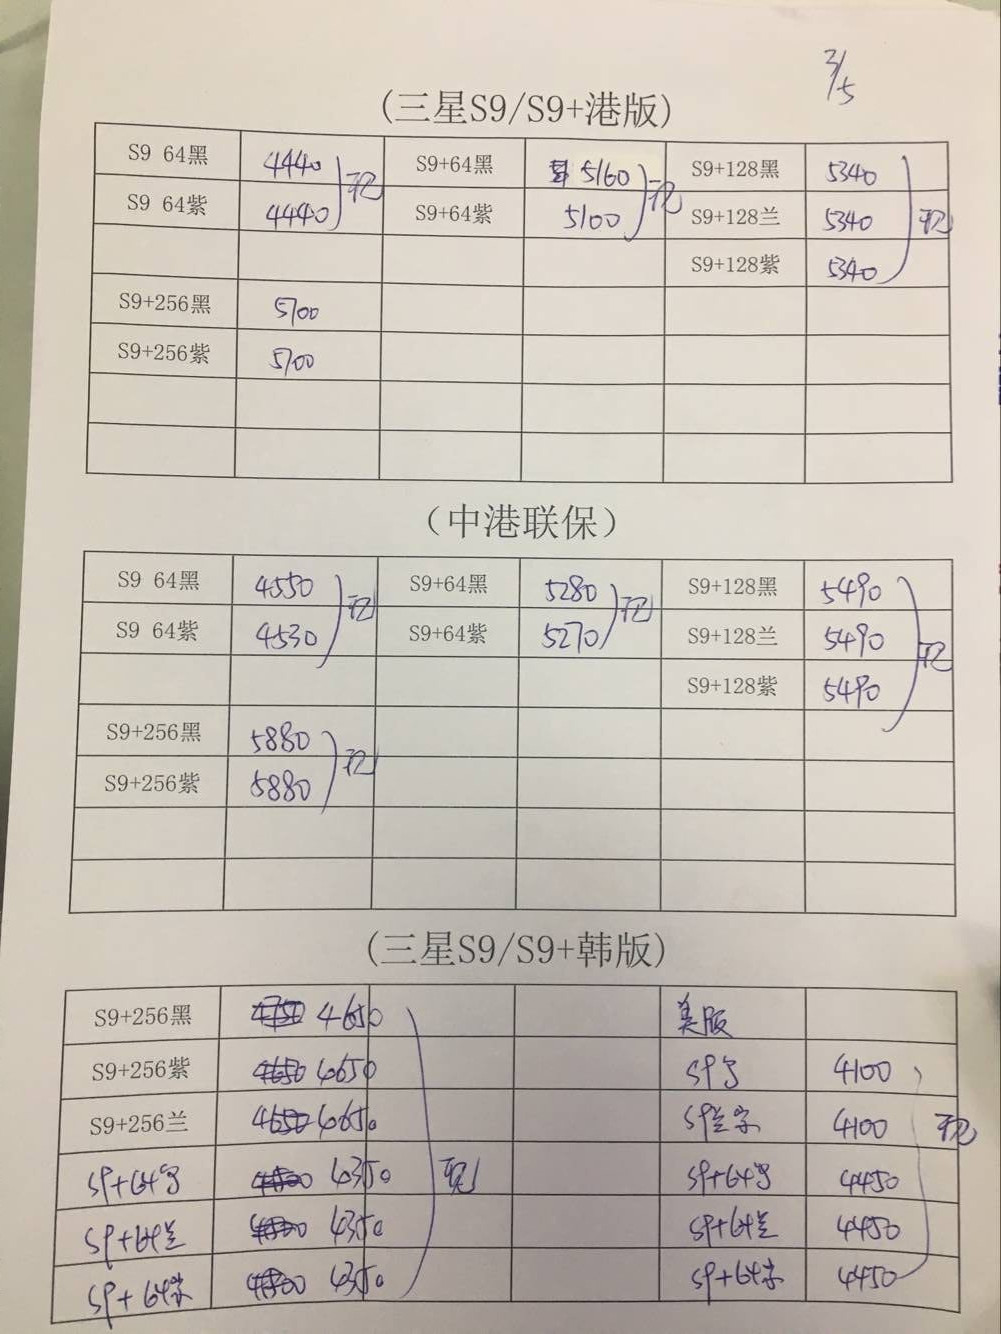 3/5
(三星S9/S9+港版)
S9 64黑 4440 现 S9+64黑 5160 现 S9+128黑 5340 现
S9 64紫 4440 S9+64紫 5100 S9+128兰 5340
S9+128紫 5340
S9+256黑 5700
S9+256紫 5700
（中港联保）
S9 64黑 4550 现 S9+64黑 5280 现 S9+128黑 5490 现
S9 64紫 4530 S9+64紫 5270 S9+128兰 5490
S9+128紫 5490
S9+256黑 5880 现
S9+256紫 5880
(三星S9/S9+韩版)
S9+256黑 4750 4650 美版
S9+256紫 4650 4650 S9 4100
S9+256兰 4650 4650 S9 4100 现
S9+64 4350 现 S9+64 4450
S9+64兰 4350 S9+64兰 4450
S9+64 4350 S9+64 4450